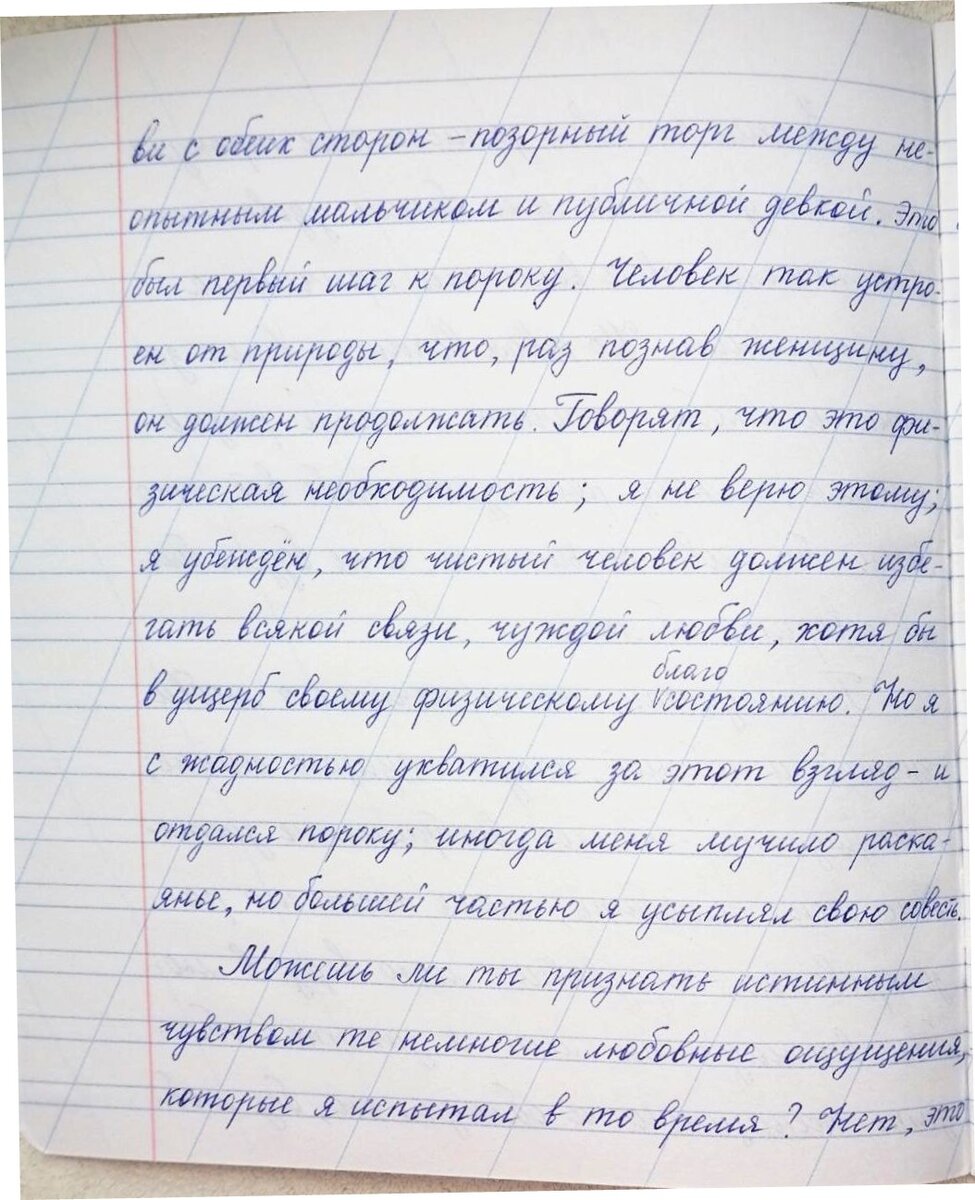 ви с обеих сторон – позорный торг между не-
опытным мальчиком и публичной девкой. Это
был первый шаг к пороку. Человек так устро-
ен от природы, что, раз познав женщину,
он должен продолжать. Говорят, что это фи-
зическая необходимость; я не верю этому;
я убеждён, что чистый человек должен избе-
гать всякой связи, чуждой любви, хотя бы
благо
в ущерб своему физическому состоянию. Но я
с жадностью ухватился за этот взгляд – и
отдался пороку; иногда меня мучило раска-
янье, но большей частью я усыплял свою совесть.
Можешь ли ты признать истинным
чувством те немногие любовные ощущения,
которые я испытал в то время? Нет, это